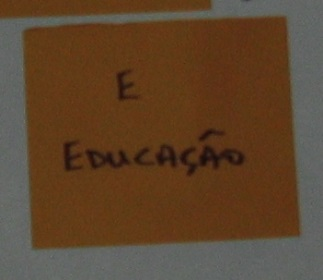 E
EDUCAÇÃO